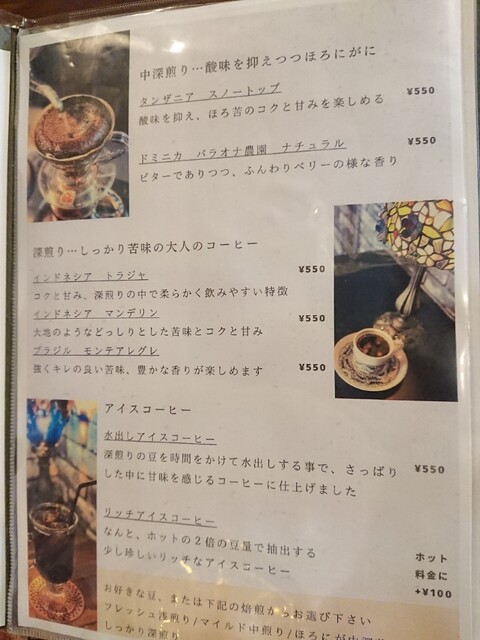 中深煎り…酸味を抑えつつほろにがに
タンザニア スノートップ ¥550
酸味を抑え、ほろ苦のコクと甘みを楽しめる
ドミニカ バラオナ農園 ナチュラル ¥550
ビターでありつつ、ふんわりベリーの様な香り
深煎り…しっかり苦味の大人のコーヒー
インドネシア トラジャ ¥550
コクと甘み、深煎りの中で柔らかく飲みやすい特徴
インドネシア マンデリン ¥550
大地のようなどっしりとした苦味とコクと甘み
ブラジル モンテアレグレ
強くキレの良い苦味、豊かな香りが楽しめます ¥550
アイスコーヒー
水出しアイスコーヒー
深煎りの豆を時間をかけて水出しする事で、さっぱり ¥550
した中に甘味を感じるコーヒーに仕上げました
リッチアイスコーヒー
なんと、ホットの2倍の豆量で抽出する
少し珍しいリッチなアイスコーヒー
ホット
料金に
+¥100
お好きな豆、または下記の焙煎からお選び下さい
フレッシュ浅煎り/マイルド中煎り/ほろにが中深煎り
しっかり深煎り